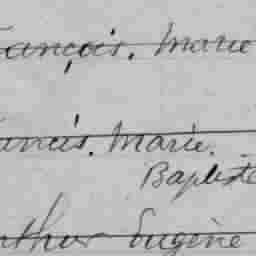 François. Marie
Francis. Marie.
Baptiste
Arthur Eugène